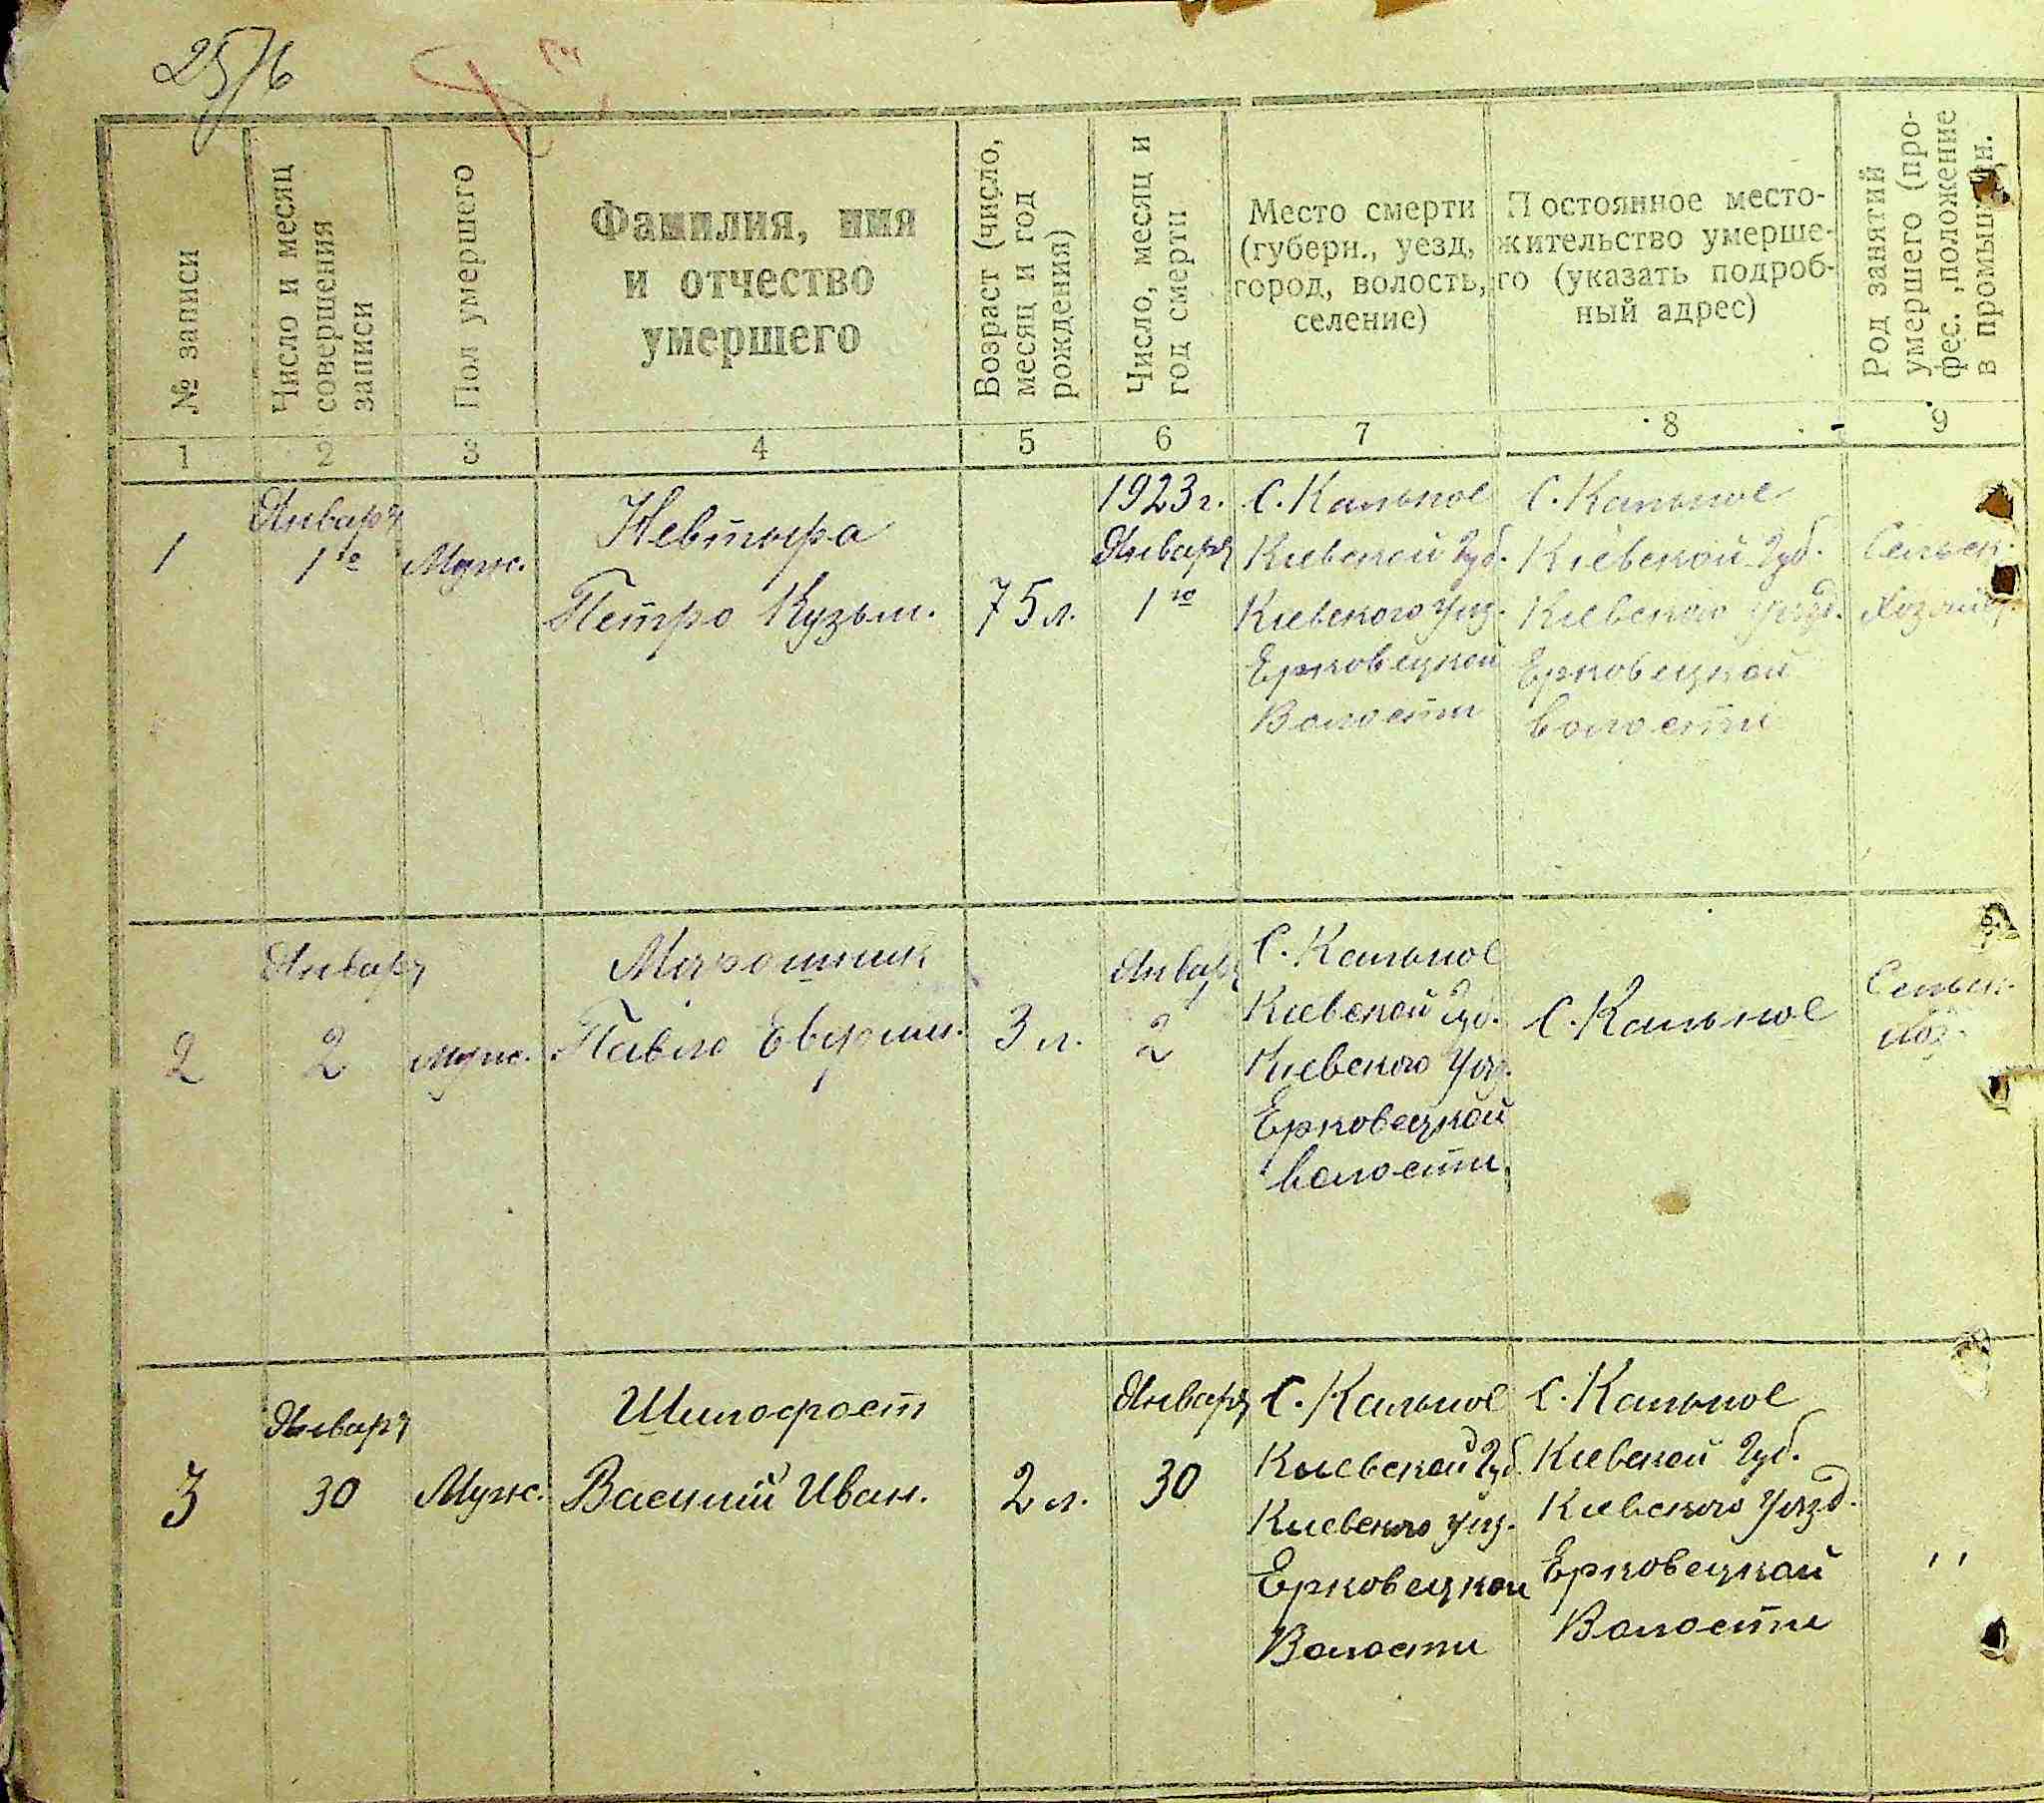 25/6
№ записи
Число и месяц
совершения
записи
Пол умершего
Фамилия, имя
и отчество
умершего
Возраст (число,
месяц и год
рождения)
Число, месяц и
год смерти
Место смерти
(губерн., уезд,
город, волость,
селение)
Постоянное место-
жительство умерше-
го (указать подроб-
ный адрес)
Род занятий
умершего (про-
фес., положение
в промышлен.
1 2 3 4 5 6 7 8 9
1
Января
1го
Мужс.
Невтыра
Петро Кузьм.
75 л.
1923 г.
Января
1го
С. Кальное
Киевской Губ.
Киевского Уез.
Ерковецкой
Волости
С. Кальное
Киевской Губ.
Киевского Уезд.
Ерковецкой
волости
Сельск.
Хозяйс.
2
Января
2
Мужс.
Мирошник
Павло Евфим.
3 л.
Января
2
С. Кальное
Киевской губ.
Киевского Уез.
Ерковецкой
волости
С. Кальное
Сельск.
Хоз.
3
Января
30
Мужс.
Шилофост
Василий Иван.
2 л.
Января
30
С. Кальное
Киевской Губ.
Киевского Уез.
Ерковецкой
Волости
С. Кальное
Киевской Губ.
Киевского Уезд.
Ерковецкой
Волости
"